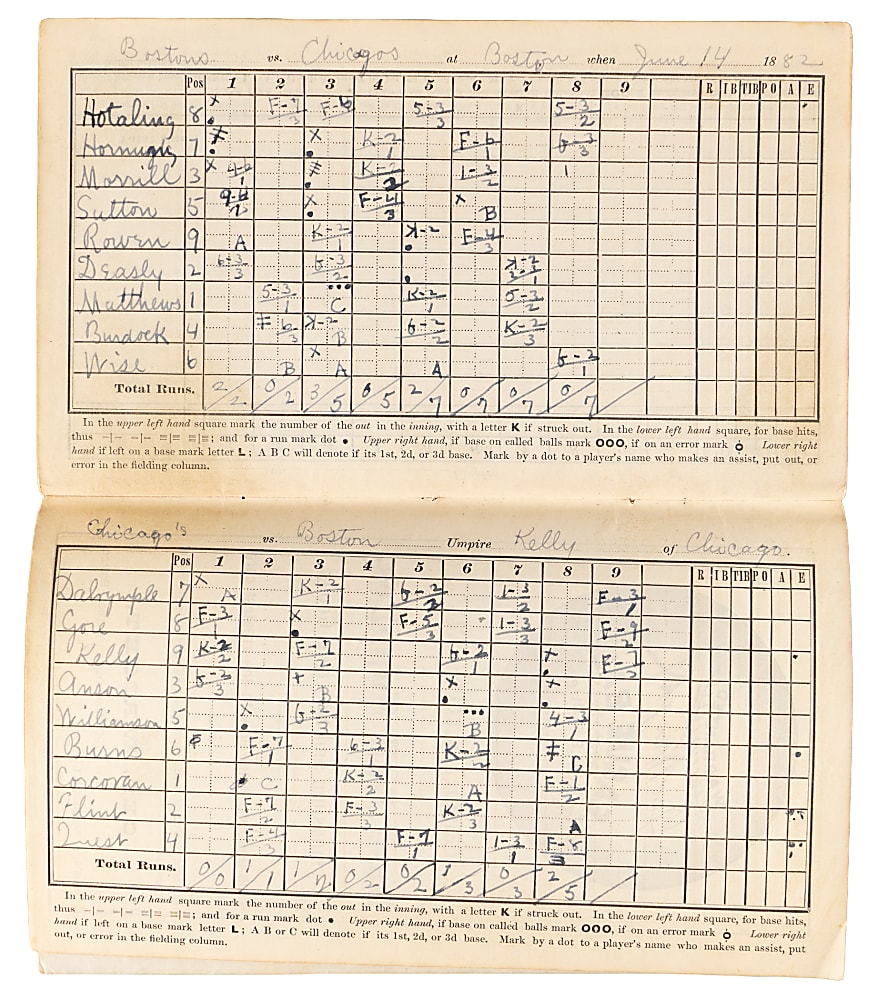 Bostons vs. Chicagos at Boston when June 14 1882
Pos 1 2 3 4 5 6 7 8 9 R IB TIB PO A E
Hotaling 8 F-7/3 F-6 5-3/3 5-3/2
Hornung 7 K-2/1 F-6/1 6-3/3
Morrill 3 4-3/1 K-2/2 1-3/2 1
Sutton 5 9-4/2 F-4/3 B
Rowen 9 A K-2/1 K-2 F-4/3
Deasly 2 6-3/3 6-3/2 K-2/1
Matthews 1 5-3/1 C K-2/1 5-3/2
Burdock 4 6/3 K-2 B 6-2/2 K-2/3
Wise 6 B A A 6-2/1
Total Runs. 2/2 0/2 3/5 0/5 2/7 0/7 0/7 0/7
In the upper left hand square mark the number of the out in the inning, with a letter K if struck out. In the lower left hand square, for base hits,
thus –|– –|– =|= =|=; and for a run mark dot ● Upper right hand, if base on called balls mark OOO, if on an error mark o Lower right
hand if left on a base mark letter L; A B C will denote if its 1st, 2d, or 3d base. Mark by a dot to a player's name who makes an assist, put out, or
error in the fielding column.
Chicago's vs. Boston Umpire Kelly of Chicago.
Pos 1 2 3 4 5 6 7 8 9 R IB TIB PO A E
Dalrymple 7 A K-2/1 6-2/2 1-3/2 F-3/1
Gore 8 F-3/1 F-5/3 1-3/3 F-9/2
Kelly 9 K-2/2 F-7/2 6-2/1 F-7/3
Anson 3 6-3/3 B
Williamson 5 6-2/3 B 4-3/1
Burns 6 F-7/1 6-3/1 K-2/2 C
Corcoran 1 C K-2/2 A F-1/2
Flint 2 F-7/2 F-3/3 K-2/3 A
Quest 4 F-4/3 F-7/1 1-3/1 F-8/3
Total Runs. 0/0 1/1 1/2 0/2 0/2 1/3 0/3 2/5
In the upper left hand square mark the number of the out in the inning, with a letter K if struck out. In the lower left hand square, for base hits,
thus –|– –|– =|= =|=; and for a run mark dot ● Upper right hand, if base on called balls mark OOO, if on an error mark o Lower right
hand if left on a base mark letter L; A B or C will denote if its 1st, 2d, or 3d base. Mark by a dot to a player's name who makes an assist, put
out, or error in the fielding column.